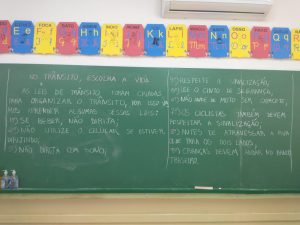 FACA
GATO
HOMEM
ÍNDIO
JACARÉ
LÁPIS
OSSO
PATO
Ee
Ff
Gg
Hh
Kk
Mm
Nn
Oo
Pp
NO TRÂNSITO, ESCOLHA A VIDA
AS LEIS DE TRÂNSITO FORAM CRIADAS
PARA ORGANIZAR O TRÂNSITO, POR ISSO VA
MOS APRENDER ALGUMAS DESSAS LEIS:
1º) SE BEBER, NÃO DIRIJA;
2º) NÃO UTILIZE O CELULAR, SE ESTIVER
DIRIGINDO;
3º) NÃO DIRIJA COM SONO;
4º) RESPEITE A SINALIZAÇÃO;
5º) USE O CINTO DE SEGURANÇA;
6º) NÃO ANDE DE MOTO SEM CAPACETE;
7º) OS CICLISTAS TAMBÉM DEVEM
RESPEITAR A SINALIZAÇÃO;
8º) ANTES DE ATRAVESSAR A RUA
OLHE PARA OS DOIS LADOS;
9º) CRIANÇAS DEVEM ANDAR NO BANCO
TRASEIRO.